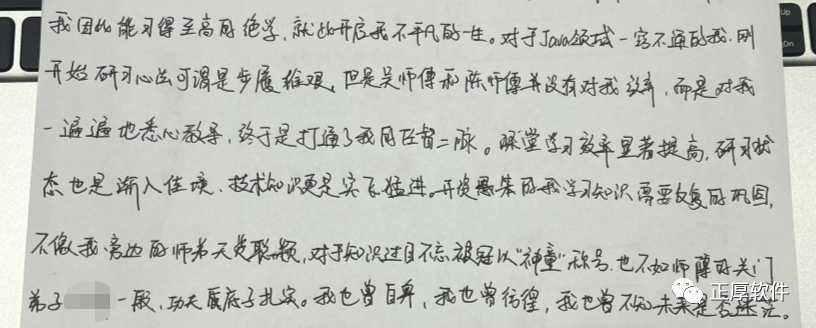 我因此能习得至高的绝学，就此开启我不平凡的一生。对于Java领域一窍不通的我，刚
开始研习心法可谓是步履维艰，但是吴师傅和陈师傅并没有对我放弃，而是对我
一遍遍地悉心教导，终于是打通了我的任督二脉。课堂学习效率显著提高，研习状
态也是渐入佳境，技术知识更是突飞猛进。天资愚笨的我学习知识需要反复的巩固，
不像我旁边的师弟天资聪颖，对于知识过目不忘被冠以“神童”称号，也不如师傅的关门
弟子 一般，功夫底子扎实。我也曾自卑，我也曾彷徨，我也曾不知未来是否迷茫。
正厚软件
Up
Dn